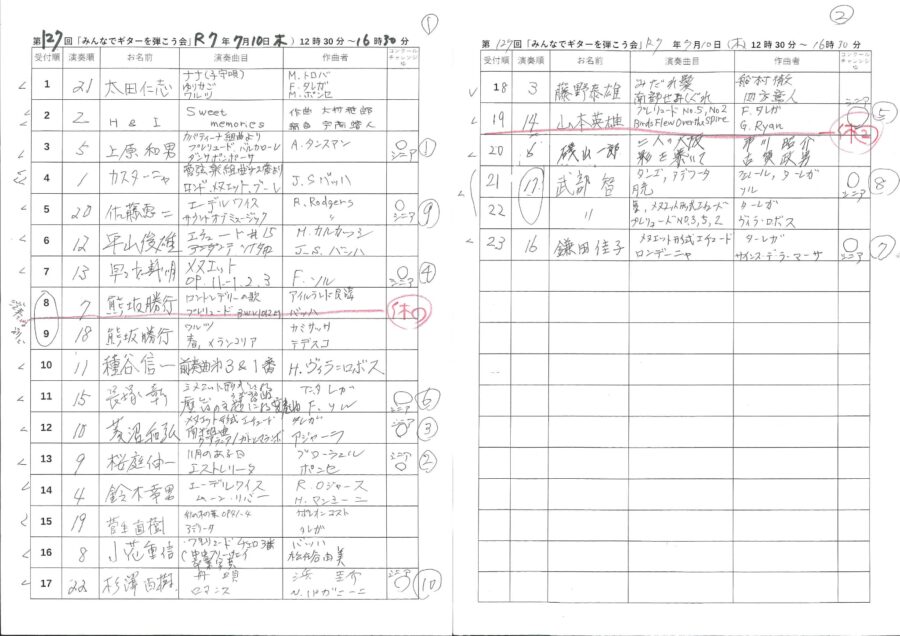 ①
第127回「みんなでギターを弾こう会」R7 年7月10日(木)12時30分～16時30分
受付順 演奏順 お名前 演奏曲目 作曲者 コンクールチャレンジ
1 21 太田仁志 ナナ(子守唄) M.トロバ
ゆりかご F.タレガ
ワルツ M.ポンセ
2 2 H & I Sweet 作曲
memories 編曲
3 5 上原和男 カバティーナ組曲より A.タンスマン シニア ①
プレリュード、バルカローレ
ダンサポンポーサ
4 1 カスターニャ 管弦楽組曲
ロンド、メヌエット、ブーレ J.Sバッハ
5 20 佐藤憲二 エーデルワイス R.Rodgers シニア ⑨
サウンドオブミュージック 〃
6 12 平山俊雄 エチュード #15 M.カルカッシ
アンダンテ J.S.バッハ
7 13 メヌエット F.ソル シニア ④
OP.11-1.2.3
8 7 熊坂勝行 ロンドンデリーの歌 アイルランド民謡
プレリュード B.W.V.1012 バッハ 休①
9 18 熊坂勝行 ワルツ カミサッサ
春,メランコリア テデスコ
10 11 種谷信一 前奏曲第3&1番 H.ヴィラ=ロボス
11 15 長塚彰 タレガ シニア ⑥
魔笛の主題による変奏曲 F.ソル
12 10 菱沼和弘 メヌエット形式エチュード タレガ シニア ③
アジャーラ
13 9 桜庭伸一 11月のある日 ブローウェル シニア ②
エストレリータ ポンセ
14 4 鈴木幸男 エーデルワイス R.ロジャース
ムーン・リバー H.マンシーニ
15 19 菅生直樹 OP41-4 ナポレオンコスト
アデリータ タレガ
16 8 小花重信 プレリュード チェロ3番 バッハ
中央フリーウェイ 松任谷由美
卒業写真
17 22 杉澤 丹頂 シニア ⑩
ロマンス N.パガニーニ
②
第127回「みんなでギターを弾こう会」R7 年7月10日(木)12時30分～16時30分
受付順 演奏順 お名前 演奏曲目 作曲者 コンクールチャレンジ
18 3 藤野泰雄 みだれ髪 船村徹
南部せみしぐれ 四方章人
19 14 山本英雄 プレリュード No.5,No2 F.タレガ シニア ⑤
Birds Flew Over the Spire G.Ryan 休②
20 6 磯山一郎 二人の大阪 市川昭介
影を慕いて 古賀政男
21 17 武部智 タンゴ,アデリータ タレガ シニア ⑧
月光 ソル
22 〃 メヌエット形式エチュード ターレガ
プレリュードNO.3,5,2 ヴィラ・ロボス
23 16 鎌田佳子 メヌエット形式エチュード ターレガ シニア ⑦
ロンデーニャ サインス・デ・ラ・マーサ